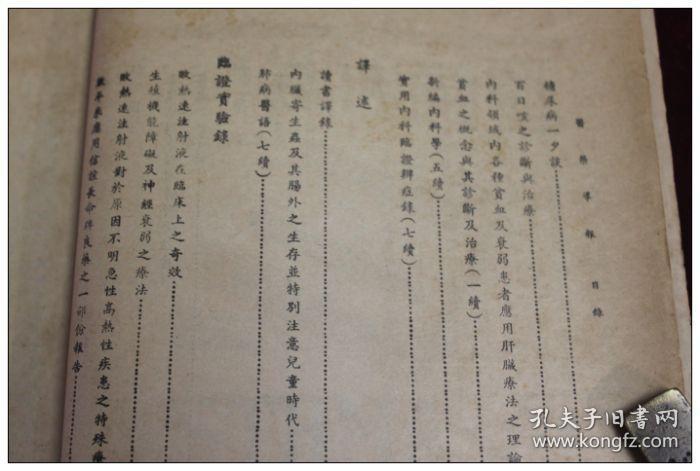 醫藥導報 目錄
糖尿病一夕談
百日咳之診斷與治療
內科領域內各種貧血及衰弱患者應用肝臟療法之理論
貧血之概念與其診斷及治療(一續)
新編內科學(五續)
實用內科臨證辨症錄(七續)
譯述
讀書譯錄
內臟寄生蟲及其腸外之生存並特別注意兒童時代
肺病醫語(七續)
臨證實驗錄
敵熱速注射液在臨床上之奇效
生殖機能障礙及神經衰弱之療法
敵熱速注射液對於原因不明急性高熱性疾患之特殊療
年來應用信誼長命牌良藥之一部份報告
孔夫子旧书网
www.kongfz.com